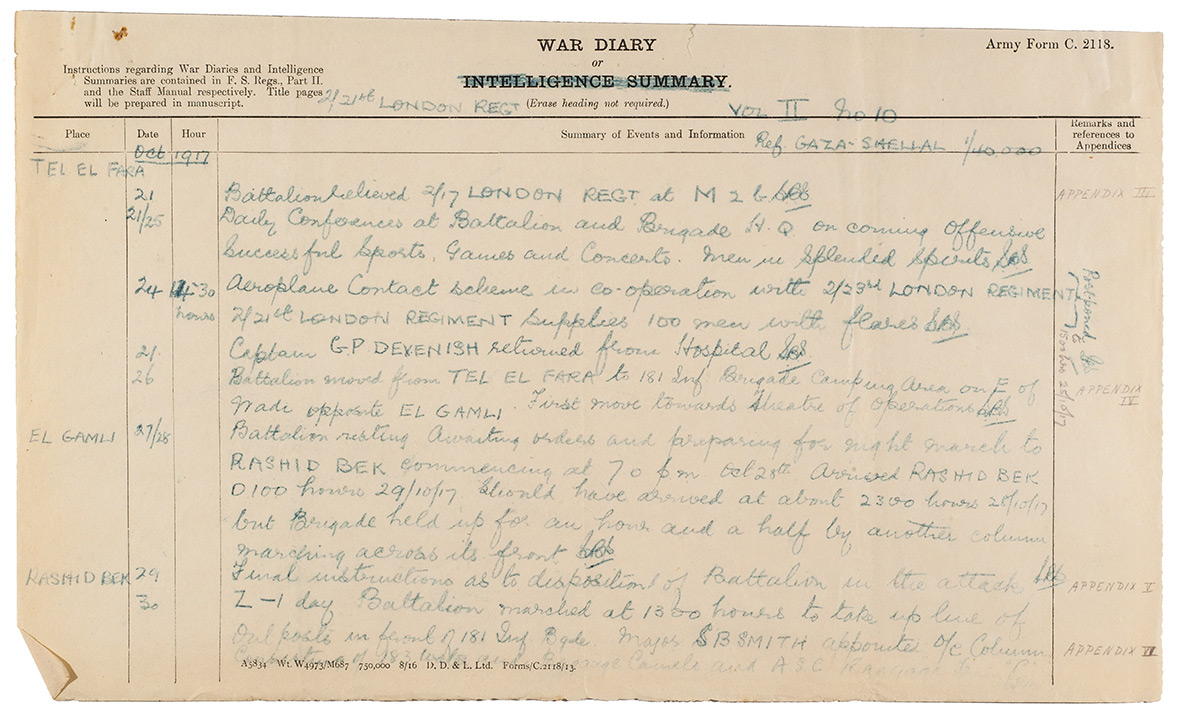 WAR DIARY
or
INTELLIGENCE SUMMARY.
(Erase heading not required.)
Army Form C. 2118.
Instructions regarding War Diaries and Intelligence
Summaries are contained in F. S. Regs., Part II.
and the Staff Manual respectively. Title pages
will be prepared in manuscript.
2/21st LONDON REGT
VOL II No 10
Place Date Hour Summary of Events and Information Remarks and
references to
Appendices
Oct 1917 Ref. GAZA-SHELLAL 1/40,000
TEL EL FARA
21 Battalion relieved 2/17 LONDON REGT at M 2 b. APPENDIX III
21/25 Daily Conferences at Battalion and Brigade H.Q. on coming Offensive
Successful Sports, Games and Concerts. Men in Splendid Spirits
24 1430 hours Aeroplane Contact scheme in co-operation with 2/23rd LONDON REGIMENT Postponed to 1500 hrs 25/10/17
2/21st LONDON REGIMENT supplies 100 men with flares
21. Captain G.P DEVENISH returned from Hospital
26 Battalion moved from TEL EL FARA to 181 Inf Brigade Camping Area on E of APPENDIX IV
Wadi opposite EL GAMLI. First move towards Theatre of Operations
EL GAMLI 27/28 Battalion resting Awaiting orders and preparing for night march to
RASHID BEK commencing at 7 0 pm Oct 28th Arrived RASHID BEK
0100 hours 29/10/17. Should have arrived at about 2300 hours 28/10/17
but Brigade held up for an hour and a half by another column
marching across its front
RASHID BEK 29 Final instructions as to disposition of Battalion in the attack APPENDIX V
30 Z-1 day Battalion marched at 1300 hours to take up line of
Outposts in front of 181 Inf Bgde. Major S B SMITH appointed O/c Column APPENDIX VI
Camels and A.S.C.
A5834 Wt. W4973/M687 750,000 8/16 D. D. & L. Ltd. Forms/C.2118/13.